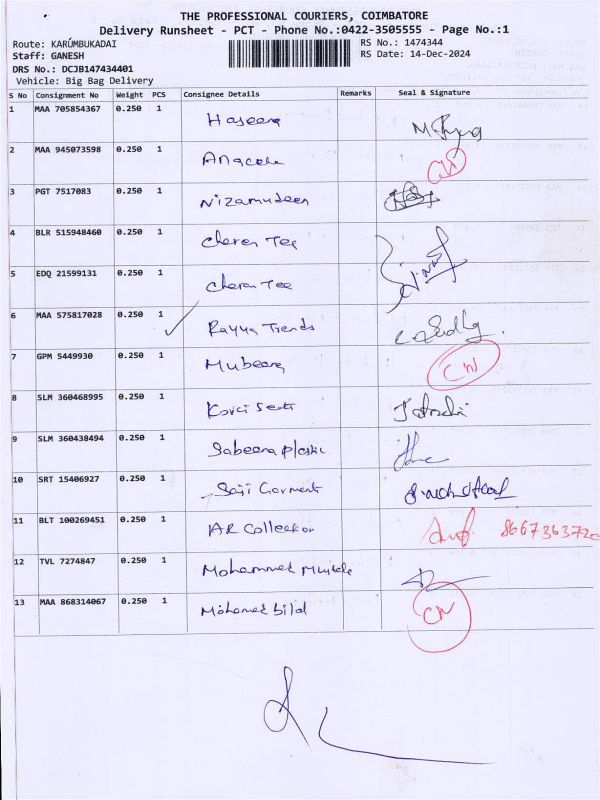 THE PROFESSIONAL COURIERS, COIMBATORE
Delivery Runsheet - PCT - Phone No.:0422-3505555 - Page No.:1
Route: KARUMBUKADAI
RS No.: 1474344
Staff: GANESH
RS Date: 14-Dec-2024
DRS No.: DCJB147434401
Vehicle: Big Bag Delivery
S No Consignment No Weight PCS Consignee Details Remarks Seal & Signature
1 MAA 705854367 0.250 1 Haseena
2 MAA 945073598 0.250 1
3 PGT 7517083 0.250 1 Nizamudeen
4 BLR 515948460 0.250 1 Cheran Tex
5 EDQ 21599131 0.250 1 Cheran Tex
6 MAA 575817028 0.250 1 Rayya Trends
7 GPM 5449930 0.250 1 Mubeena
8 SLM 360468995 0.250 1
9 SLM 360438494 0.250 1 Sabeena Plastic
10 SRT 15406927 0.250 1 Saji Garments
11 BLT 100269451 0.250 1 AR Collection
12 TVL 7274847 0.250 1 Mohammed
13 MAA 868314067 0.250 1 Mohamed bilal CN